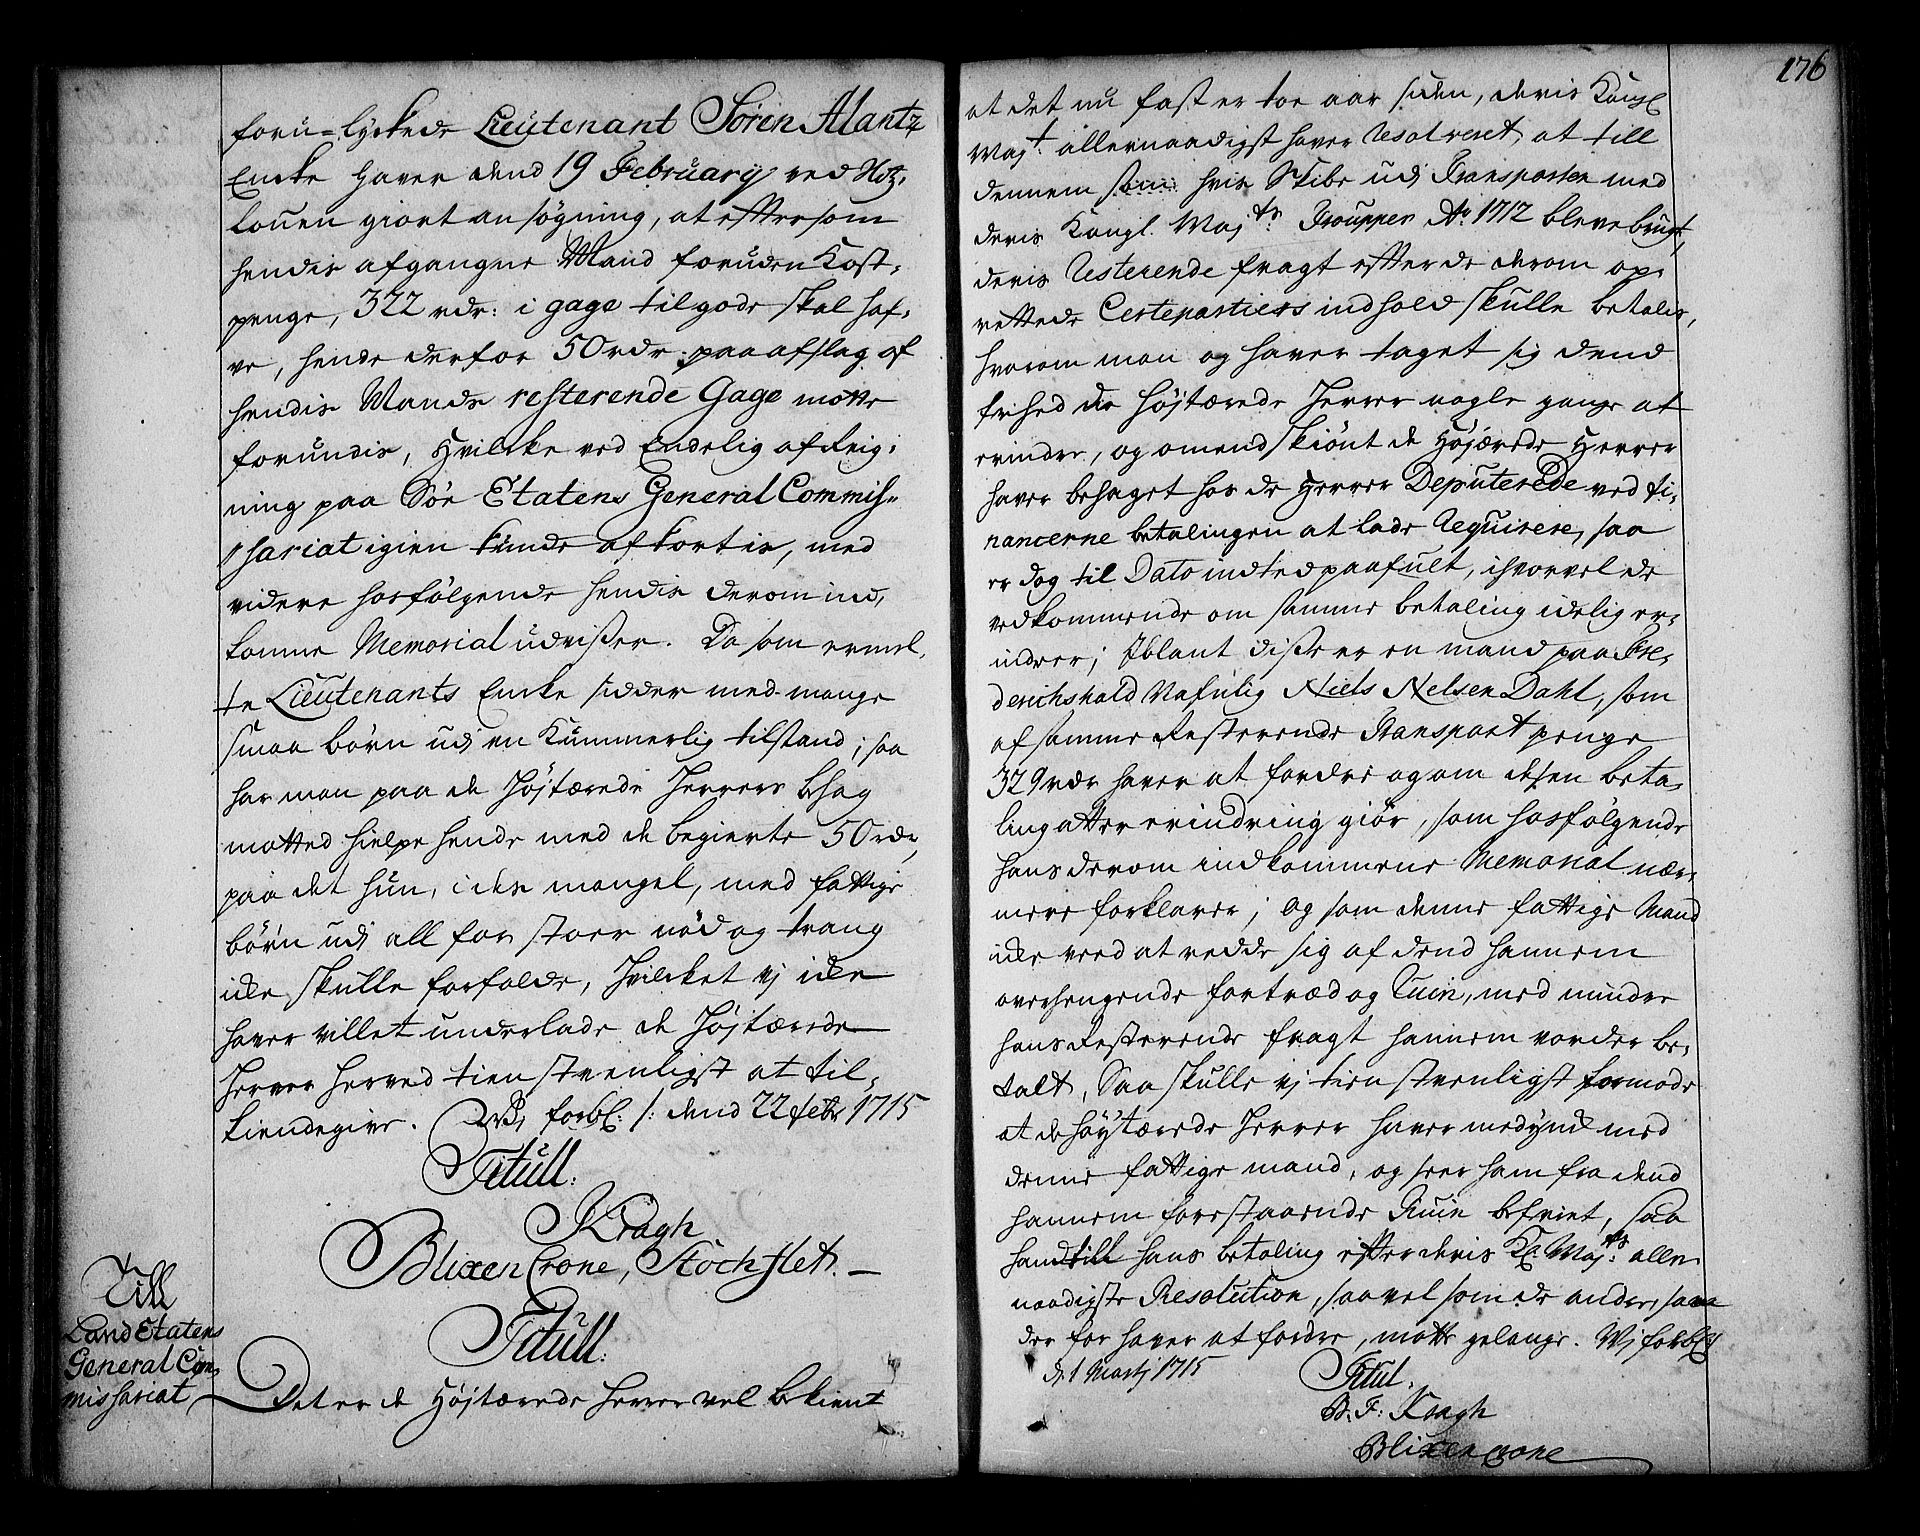 foru-lyckede Lieutenant Søren Mantz
Encke haver dend 19 February ved
louen giort ansøgning, at eftersom
hendis afgangne Mand foruden Kost-
penge, 322 rdr: i gage tilgode skal haf-
ve, hende derfor 50 rdr. paa afslag af
hendis Mands resterende Gage motte
forundis, Hvilcke ved Endelig afreig-
ning paa Søe Etatens General Commis-
sariat igien kunde afkortis, med
videre hosfølgende hendis derom ind-
komne Memorial udviser. Da som ermel-
te Lieutenants Encke sidder med mange
smaa børn udj en Kummerlig tilstand; saa
har man paa de Højtærede Herrers bhag
motted hielpe hende med de begierte 50 rdr,
paa det hun, i des mangel, med fattige
børn udj all for stoer nød og trang
icke skulle forfalde, Hvilcket vj icke
haver villet underlade de Højtærede
Herrer herved tienstvenligst at til-
kiendegive. Vj forbl: /: dend 22 febr 1715
Titull:
Kragh
Blixencrone, Stochflet. —
Till
Land Etatens
General Com-
missariat
Titull:
Det er de Højtærede Herrer vel bekient
176
at det nu fast er toe aar siden, deris Kongl
Majt: allernaadigst haver Resolveret, at till
dennem som hvis Skibe udj Transporten med
deris Kongl. Majts: Troupper Ao 1712 bleve brugt,
deris Resterende fragt efter de derom op-
rettede Certepartiers indhold skulle betalis,
hvorom man og haver taget sig dend
frihed de Højtærede Herrer nogle gange at
erindre, og omendskiønt de Højærede Herrer
haver behaget hos de Herrer Deputerede ved fi-
nancerne betalingen at lade Requirere, saa
er dog til Dato indted paafult, ihvorvel de
vedkommende om samme betaling idelig er-
indrer; Iblant disse er en mand paa Fre-
derichshald Nafnlig Niels Nelsen Dahl, som
af samme Resterende Transport penge
329 rdr haver at fordre og om desen beta-
ling atter erindring giør, som hosfølgende
hans derom indkommene Memorial nær-
mere forklarer; og som denne fattige Mand
icke veed at redde sig af dend hannem
overhengende fortræd og Ruin, med mindre
hans Resterende fragt hannem vorder be-
talt, Saa skulle vj tienstvenligst formode
at de Høytærede Herrer haver medynk med
denne fattige mand, og seer ham fra dend
hannem forestaaende Ruin befriet, saa
hand till hans betaling efter deris Kl. Majts: aller-
naadigste Resolution, saavel som de andre, som
der for haver at fordre, motte gelange. Vj forbl:
d. 1 Martj 1715
Titul.
B. F: Kragh
Blixencrone